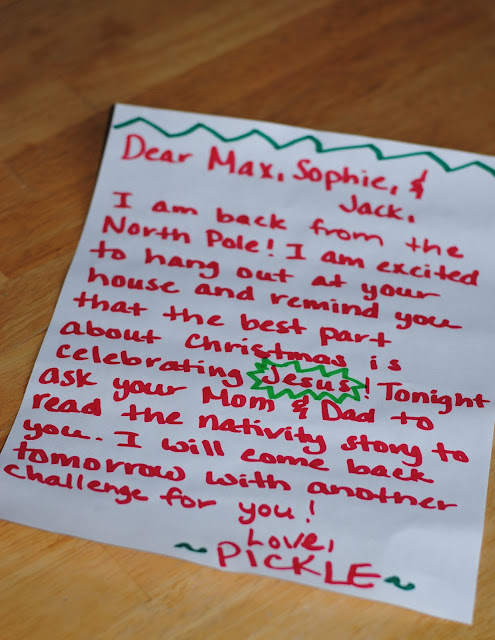 Dear Max, Sophie, &
Jack,
I am back from the
North Pole! I am excited
to hang out at your
house and remind you
that the best part
about Christmas is
celebrating Jesus! Tonight
ask your Mom & Dad to
read the nativity story to
you. I will come back
tomorrow with another
challenge for you!
Love,
~ PICKLE ~